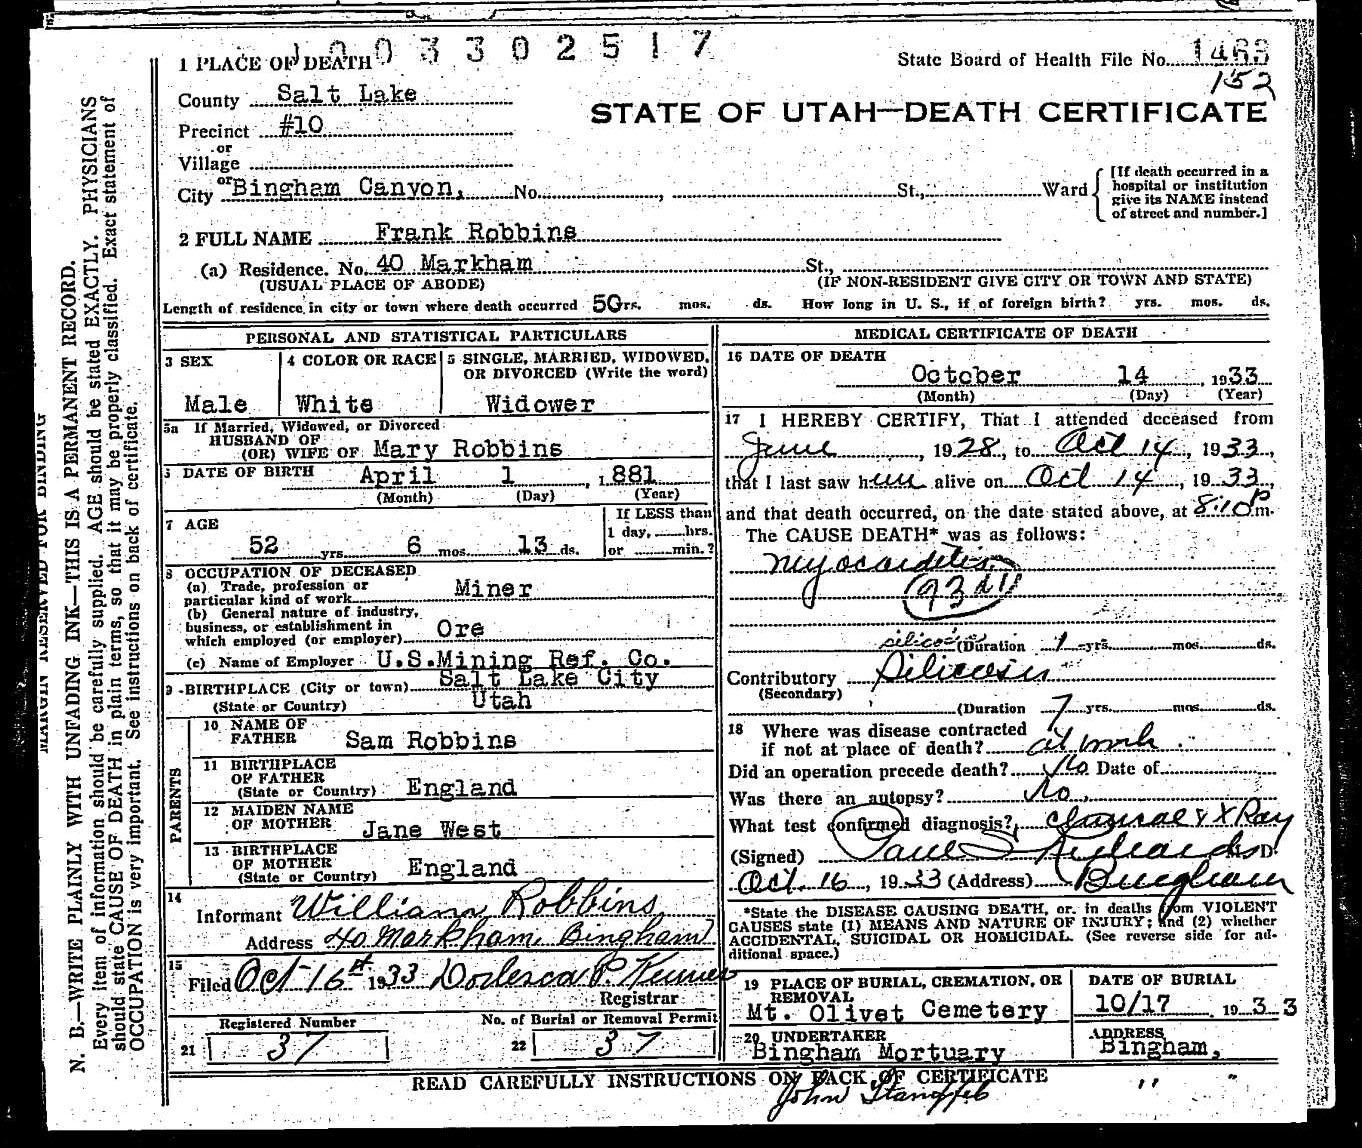 1003302517
1 PLACE OF DEATH
State Board of Health File No. 1463
152
County Salt Lake
STATE OF UTAH—DEATH CERTIFICATE
Precinct #10
or
Village
or
City Bingham Canyon, No. , St., Ward
[If death occurred in a
hospital or institution
give its NAME instead
of street and number.]
2 FULL NAME Frank Robbins
(a) Residence. No. 40 Markham St.,
(USUAL PLACE OF ABODE) (IF NON-RESIDENT GIVE CITY OR TOWN AND STATE)
Length of residence in city or town where death occurred 50 yrs. mos. ds. How long in U. S., if of foreign birth? yrs. mos. ds.
PERSONAL AND STATISTICAL PARTICULARS
3 SEX
Male
4 COLOR OR RACE
White
5 SINGLE, MARRIED, WIDOWED,
OR DIVORCED (Write the word)
Widower
5a If Married, Widowed, or Divorced
HUSBAND OF
(OR) WIFE OF Mary Robbins
DATE OF BIRTH April 1, 1881
(Month) (Day) (Year)
7 AGE
52 yrs. 6 mos. 13 ds.
If LESS than
1 day, hrs.
or min.?
8 OCCUPATION OF DECEASED
(a) Trade, profession or
particular kind of work Miner
(b) General nature of industry,
business, or establishment in
which employed (or employer) Ore
(c) Name of Employer U.S.Mining Ref. Co.
9 BIRTHPLACE (City or town) Salt Lake City
(State or Country) Utah
PARENTS
10 NAME OF
FATHER Sam Robbins
11 BIRTHPLACE
OF FATHER
(State or Country) England
12 MAIDEN NAME
OF MOTHER Jane West
13 BIRTHPLACE
OF MOTHER
(State or Country) England
14
Informant William Robbins
Address 40 Markham, Bingham
15
Filed Oct 16 1933
Registrar
Registered Number
21 37
No. of Burial or Removal Permit
22 37
MEDICAL CERTIFICATE OF DEATH
16 DATE OF DEATH
October 14, 1933
(Month) (Day) (Year)
17 I HEREBY CERTIFY, That I attended deceased from
June, 1928, to Oct 14, 1933,
that I last saw him alive on Oct 14, 1933,
and that death occurred, on the date stated above, at 8:10 P m.
The CAUSE DEATH* was as follows:
Myocarditis
silicosis (Duration 1 yrs. mos. ds.
Contributory Silicosis
(Secondary)
(Duration 7 yrs. mos. ds.
18 Where was disease contracted
if not at place of death? at work.
Did an operation precede death? No Date of
Was there an autopsy? No.
What test confirmed diagnosis? clinical & X Ray
(Signed) Paul S Richards M. D.
Oct. 16, 1933 (Address) Bingham
*State the DISEASE CAUSING DEATH, or in deaths from VIOLENT
CAUSES state (1) MEANS AND NATURE OF INJURY; and (2) whether
ACCIDENTAL, SUICIDAL OR HOMICIDAL. (See reverse side for ad-
ditional space.)
19 PLACE OF BURIAL, CREMATION, OR
REMOVAL
Mt. Olivet Cemetery
DATE OF BURIAL
10/17 1933
20 UNDERTAKER
Bingham Mortuary
ADDRESS
Bingham,
READ CAREFULLY INSTRUCTIONS ON BACK OF CERTIFICATE
John
MARGIN RESERVED FOR BINDING
N. B.—WRITE PLAINLY WITH UNFADING INK—THIS IS A PERMANENT RECORD.
Every item of information should be carefully supplied. AGE should be stated EXACTLY. PHYSICIANS
should state CAUSE OF DEATH in plain terms, so that it may be properly classified. Exact statement of
OCCUPATION is very important. See instructions on back of certificate.